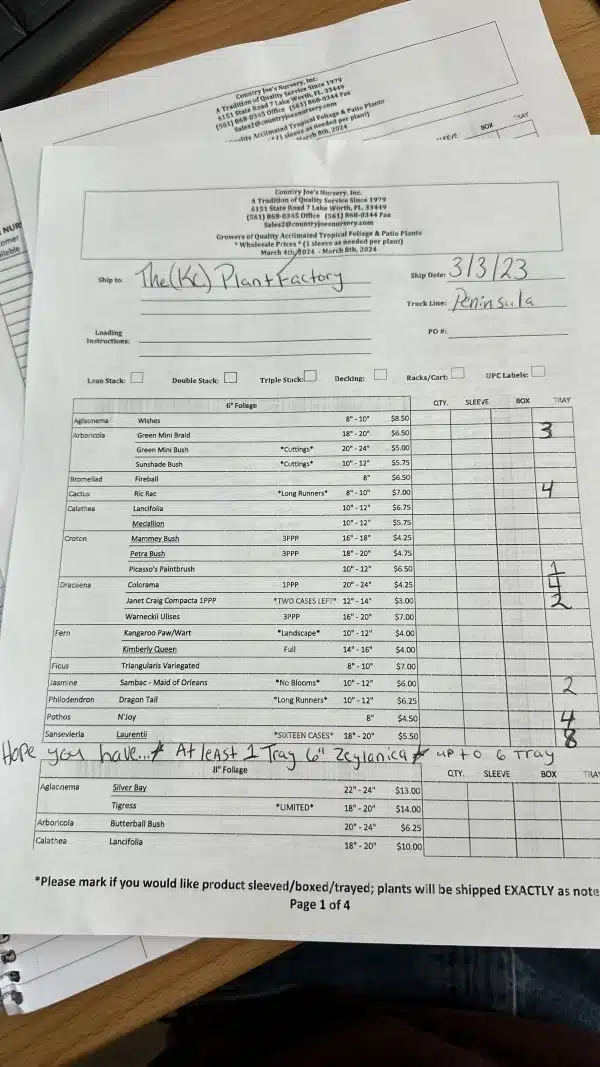 Country Joe's Nursery, Inc.
A Tradition of Quality Service Since 1979
6151 State Road 7 Lake Worth, FL. 33449
(561) 868-0345 Office (561) 868-0344 Fax
Sales2@countryjoesnursery.com
Quality Acclimated Tropical Foliage & Patio Plants
(1 sleeve as needed per plant)
March 8th, 2024
BOX TRAY
Country Joe's Nursery, Inc.
A Tradition of Quality Service Since 1979
6151 State Road 7 Lake Worth, FL. 33449
(561) 868-0345 Office (561) 868-0344 Fax
Sales2@countryjoesnursery.com
Growers of Quality Acclimated Tropical Foliage & Patio Plants
* Wholesale Prices * (1 sleeve as needed per plant)
March 4th, 2024 - March 8th, 2024
Ship to: The (KC) Plant Factory Ship Date: 3/3/23
Truck Line: Peninsula
Loading Instructions: PO #:
Loan Stack: Double Stack: Triple Stack: Decking: Racks/Cart: UPC Labels:
6" Foliage QTY. SLEEVE BOX TRAY
Aglaonema Wishes 8" - 10" $8.50
Arboricola Green Mini Braid 18" - 20" $6.50 3
Green Mini Bush *Cuttings* 20" - 24" $5.00
Sunshade Bush *Cuttings* 10" - 12" $5.75
Bromeliad Fireball 8" $6.50
Cactus Ric Rac *Long Runners* 8" - 10" $7.00 4
Calathea Lancifolia 10" - 12" $6.75
Medallion 10" - 12" $5.75
Croton Mammey Bush 3PPP 16" - 18" $4.25
Petra Bush 3PPP 18" - 20" $4.75
Picasso's Paintbrush 10" - 12" $6.50 1
Dracaena Colorama 1PPP 20" - 24" $4.25 4
Janet Craig Compacta 1PPP *TWO CASES LEFT* 12" - 14" $3.00 2
Warneckii Ulises 3PPP 16" - 20" $7.00
Fern Kangaroo Paw/Wart *Landscape* 10" - 12" $4.00
Kimberly Queen Full 14" - 16" $4.00
Ficus Triangularis Variegated 8" - 10" $7.00
Jasmine Sambac - Maid of Orleans *No Blooms* 10" - 12" $6.00 2
Philodendron Dragon Tail *Long Runners* 10" - 12" $6.25
Pothos N'Joy 8" $4.50 4
Sansevieria Laurentii *SIXTEEN CASES* 18" - 20" $5.50 8
Hope you have...* At least 1 Tray 6" Zeylanica * up to 6 Tray
8" Foliage QTY. SLEEVE BOX TRA
Aglaonema Silver Bay 22" - 24" $13.00
Tigress *LIMITED* 18" - 20" $14.00
Arboricola Butterball Bush 20" - 24" $6.25
Calathea Lancifolia 18" - 20" $10.00
*Please mark if you would like product sleeved/boxed/trayed; plants will be shipped EXACTLY as note
Page 1 of 4